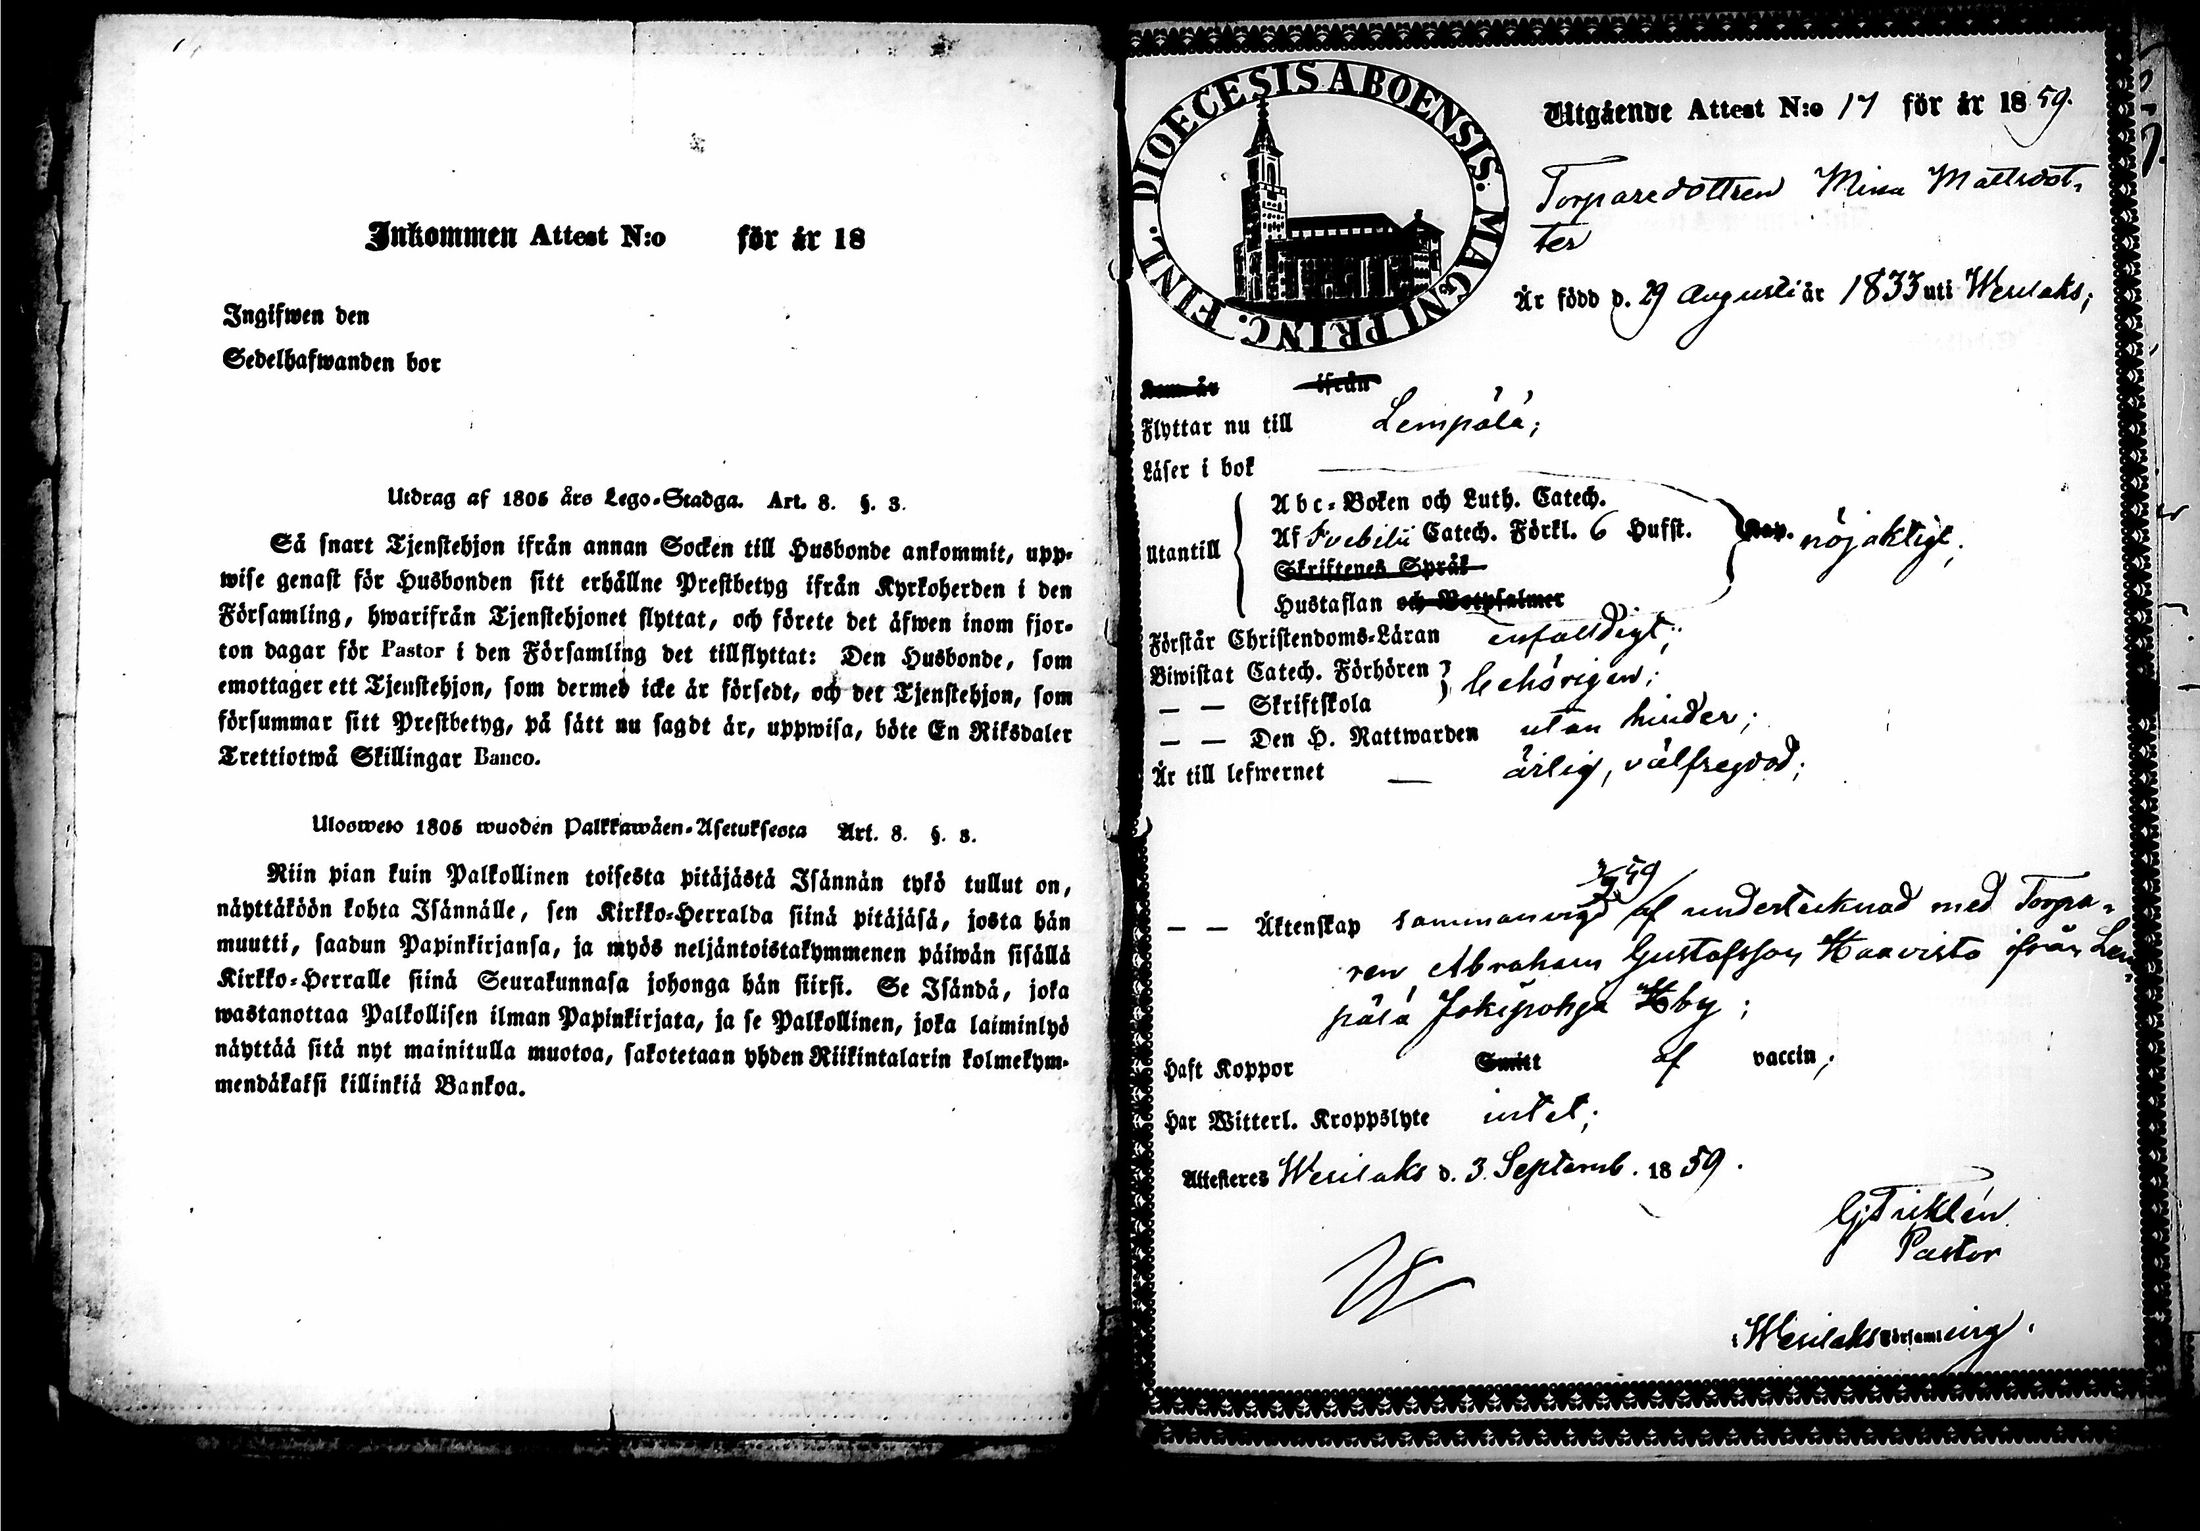 Inkommen Attest N:o för år 18
Ingifwen den
Sedelhafwanden bor
Utdrag af 1805 års Lego-Stadga. Art. 8. §. 3.
Så snart Tjenstehjon ifrån annan Socken till Husbonde ankommit, upp-
wise genast för Husbonden sitt erhållne Prestbetyg ifrån Kyrkoherden i den
Församling, hwarifrån Tjenstehjonet flyttat, och förete det äfwen inom fjor-
ton dagar för Pastor i den Församling det tillflyttat: Den Husbonde, som
emottager ett Tjenstehjon, som dermed icke är försedt, och det Tjenstehjon, som
försummar sitt Prestbetyg, på sätt nu sagdt är, uppwisa, böte En Riksdaler
Trettiotwå Skillingar Banco.
Ulosweto 1805 wuoden Palkkawäen-Asetuksesta Art. 8. §. 3.
Niin pian kuin Palkollinen toisesta pitäjästä Isännän tykö tullut on,
näyttäköön kohta Isännälle, sen Kirkko-Herralda siinä pitäjäsä, josta hän
muutti, saadun Papinkirjansa, ja myös neljäntoistakymmenen päiwän sisällä
Kirkko-Herralle siinä Seurakunnasa johonga hän siirsi. Se Isändä, joka
wastanottaa Palkollisen ilman Papinkirjata, ja se Palkollinen, joka laiminlyö
näyttää sitä nyt mainitulla muotoa, sakotetaan yhden Riikintalarin kolmekym-
mendäkaksi killinkiä Bankoa.
DIOECESIS ABOENSIS. MAGNI PRINC. FINL.
Utgående Attest N:o 17 för år 1859.
Torparedottren Mina Mattsdot-
ter
Är född d. 29 Augusti år 1833 uti Wesilaks;
Kom år ifrån
Flyttar nu till Lempälä;
Läser i bok
Utantill
Abc-Boken och Luth. Catech.
Af Svebilii Catech. Förkl. 6 Hufst.
Skriftenes Språk
Hustaflan och Botpsalmer
Kap. nöjaktigt;
Förstår Christendoms-Läran enfaldigt;
Biwistat Catech. Förhören } behörigen;
— — Skriftskola
— — Den H. Nattwarden utan hinder;
Är till lefwernet — ärlig, välfregdad;
59
— — Äktenskap sammanvigd af undertecknad med Torpa-
ren Abraham Gustafsson Haavisto ifrån Lem-
pälä Jokipohja by;
Haft Koppor Smitt af vaccin;
Har Witterl. Kroppslyte intet;
Attesteres Wesilaks d. 3 Septemb. 1859.
Pastor
i Wesilaks Församling.